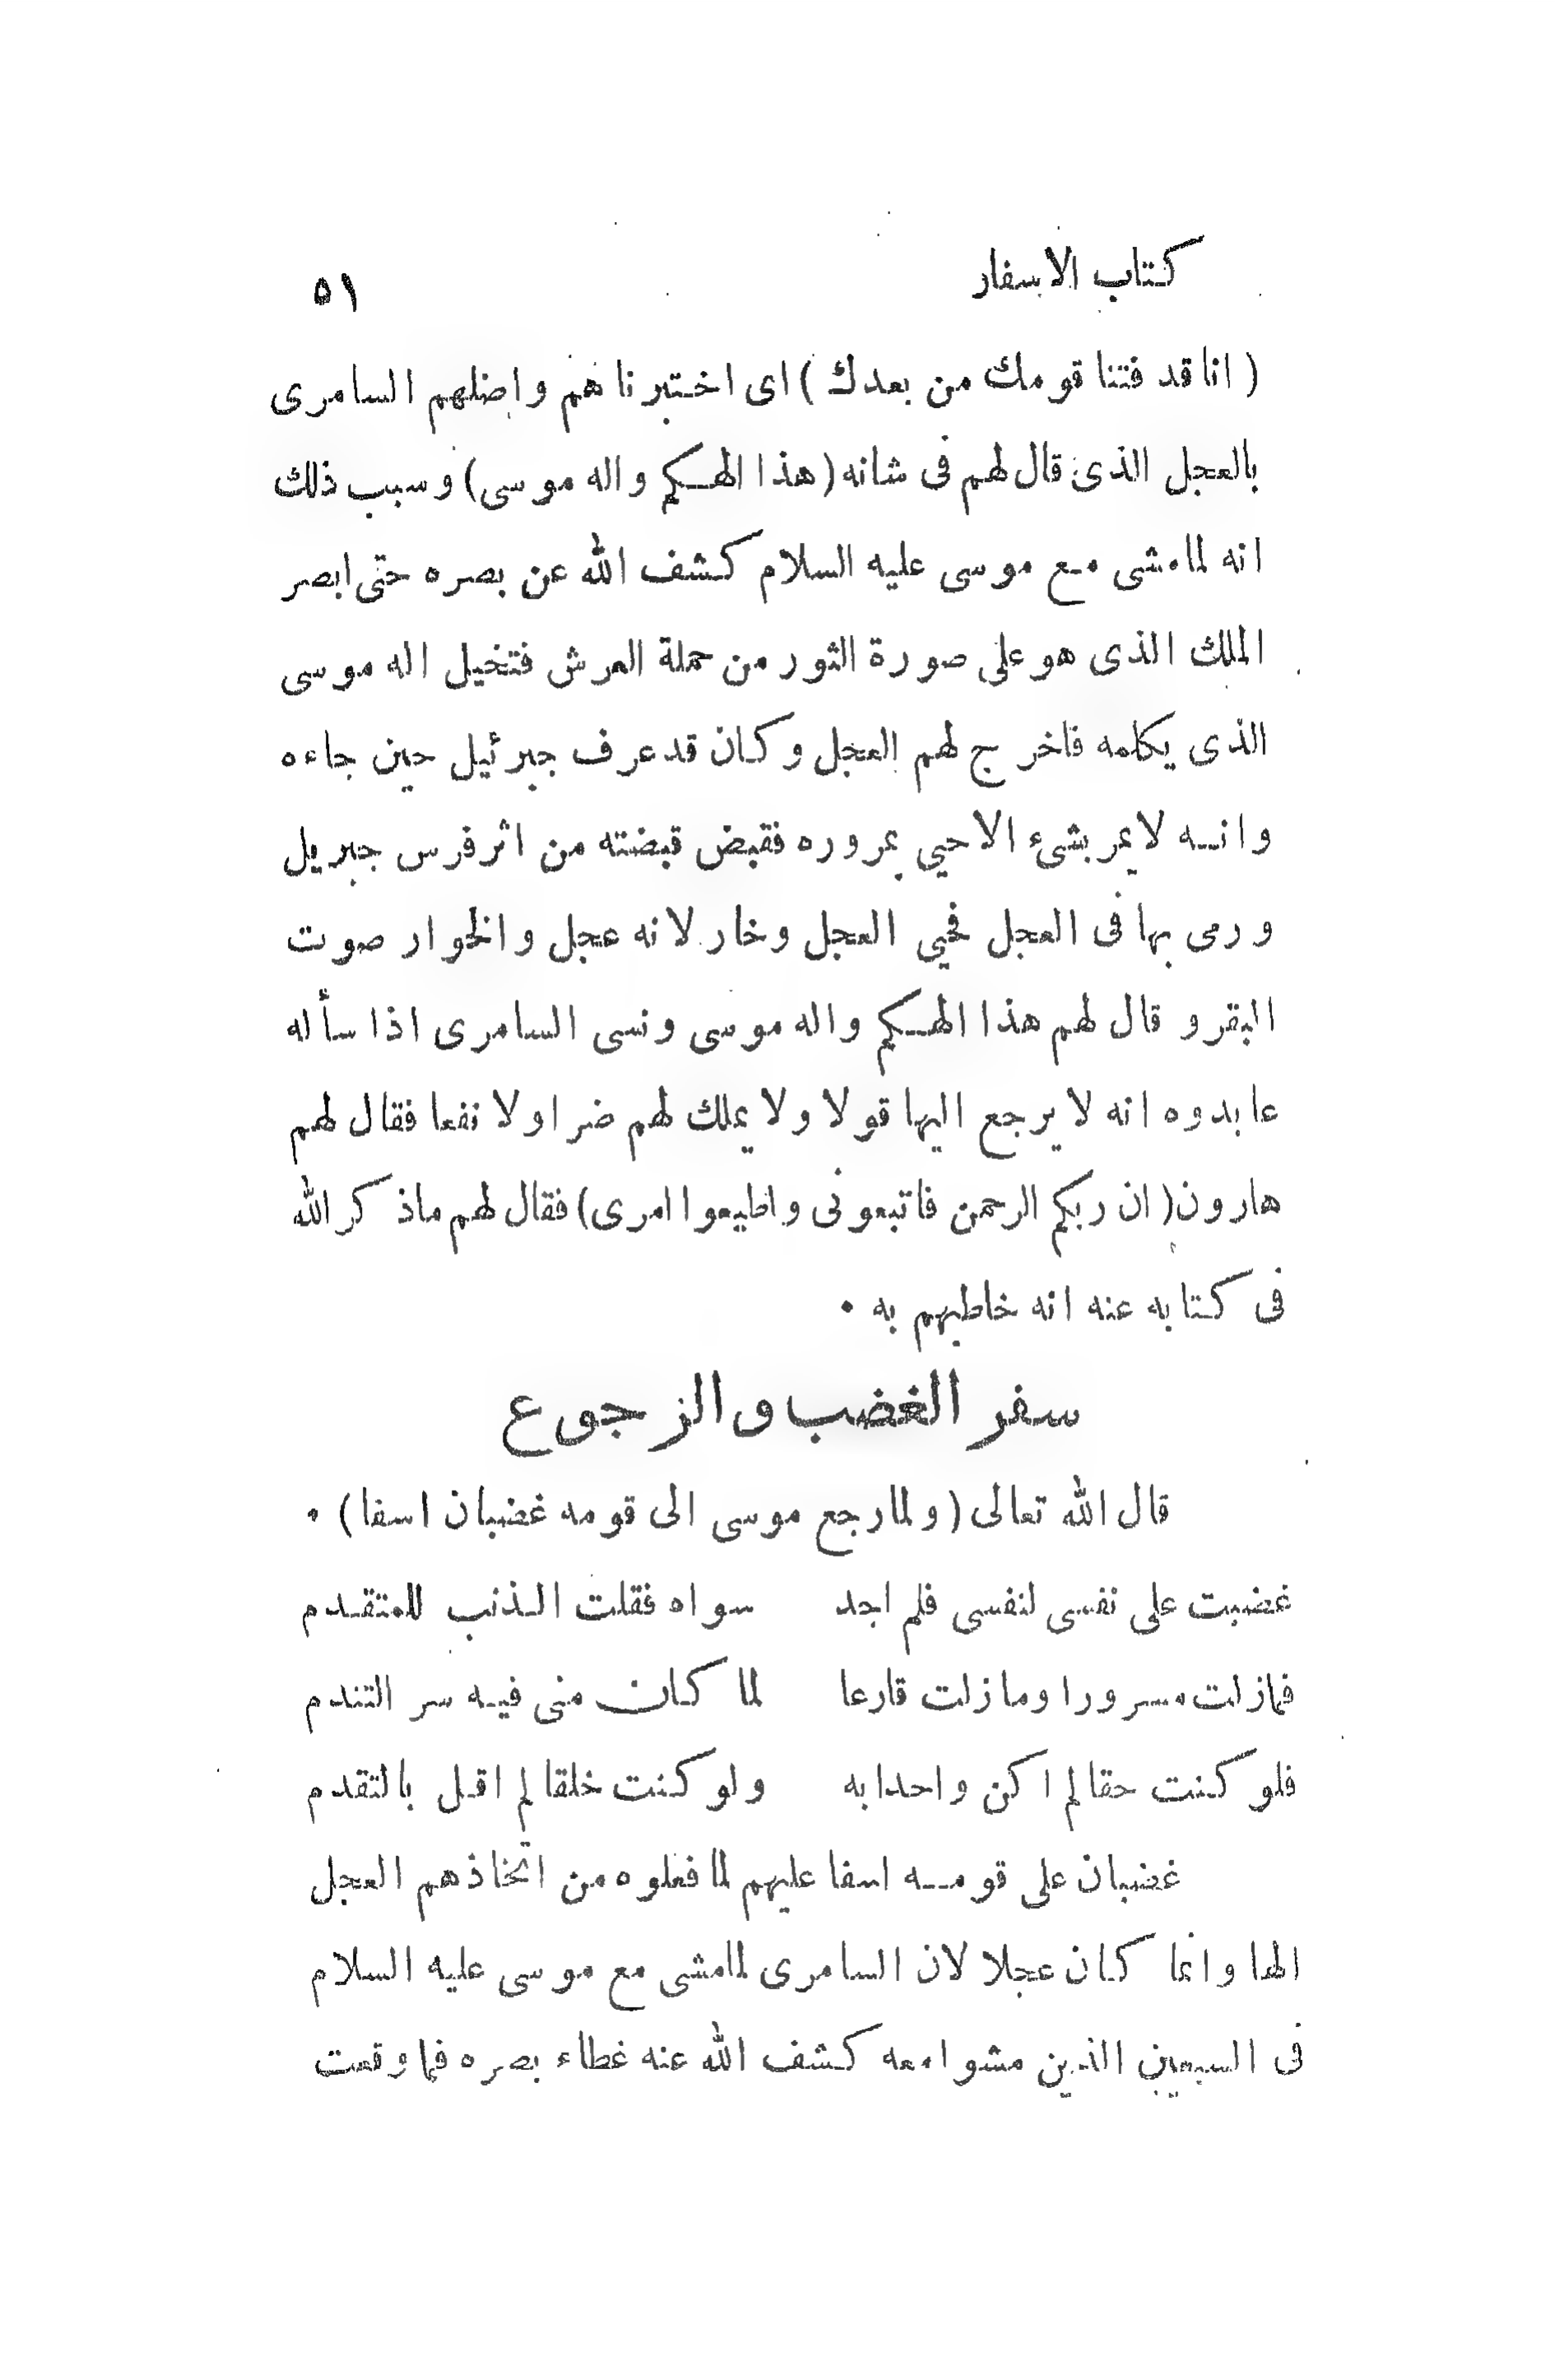 كتاب الاسفار ٥١
( انا قد فتنا قومك من بعدك ) اى اختبرناهم واضلهم السامرى
بالعجل الذى قال لهم فى شانه (هذا الهكم واله موسى) وسبب ذلك
انه لما مشى مع موسى عليه السلام كشف الله عن بصره حتى ابصر
الملك الذى هو على صورة الثور من حملة العرش فتخيل اله موسى
الذى يكلمه فاخرج لهم العجل وكان قد عرف جبرئيل حين جاءه
وانه لا يمر بشىء الا حيى بمروره فقبض قبضته من اثر فرس جبريل
ورمى بها فى العجل فحيى العجل وخار لانه عجل والخوار صوت
البقر و قال لهم هذا الهكم واله موسى ونسى السامرى اذا سأله
عابدوه انه لا يرجع اليها قولا ولا يملك لهم ضرا ولا نفعا فقال لهم
هارون (ان ربكم الرحمن فاتبعونى واطيعوا امرى) فقال لهم ماذكر الله
فى كتابه عنه انه خاطبهم به ٠
سفر الغضب والزجوع
قال الله تعالى (ولما رجع موسى الى قومه غضبان اسفا) ٠
غضبت على نفسى لنفسى فلم اجد سواه فقلت الذنب للمتقدم
فمازلت مسرورا ومازلت قارعا لما كان منى فيه سر التندم
فلو كنت حقا لم اكن واحدا به ولو كنت خلقا لم اقل بالتقدم
غضبان على قومه اسفا عليهم لما فعلوه من اتخاذهم العجل
الها وانما كان عجلا لان السامرى لما مشى مع موسى عليه السلام
فى السبعين الذين مشوا معه كشف الله عنه غطاء بصره فما وقعت